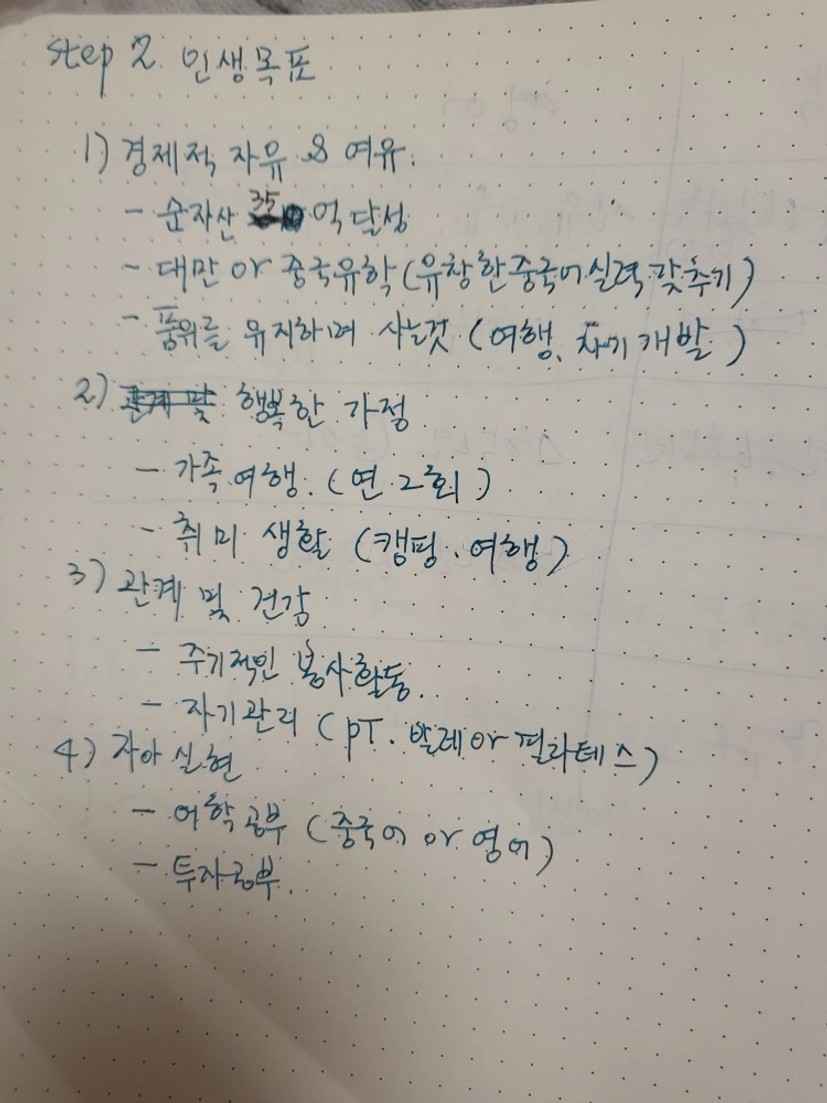 Step 2. 인생목표
1) 경제적 자유 & 여유.
- 순자산 35억 달성
- 대만 or 중국유학 (유창한 중국어 실력 갖추기)
- 품위를 유지하며 사는것 (여행, 자기개발)
2) 행복한 가정
- 가족 여행. (연 2회)
- 취미 생활 (캠핑. 여행)
3) 관계 및 건강
- 주기적인 봉사활동.
- 자기관리 (PT. 발레 or 필라테스)
4) 자아 실현
- 어학공부 (중국어 or 영어)
- 투자공부.